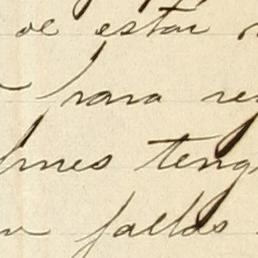 de estar
para re
lmes teng
fallos